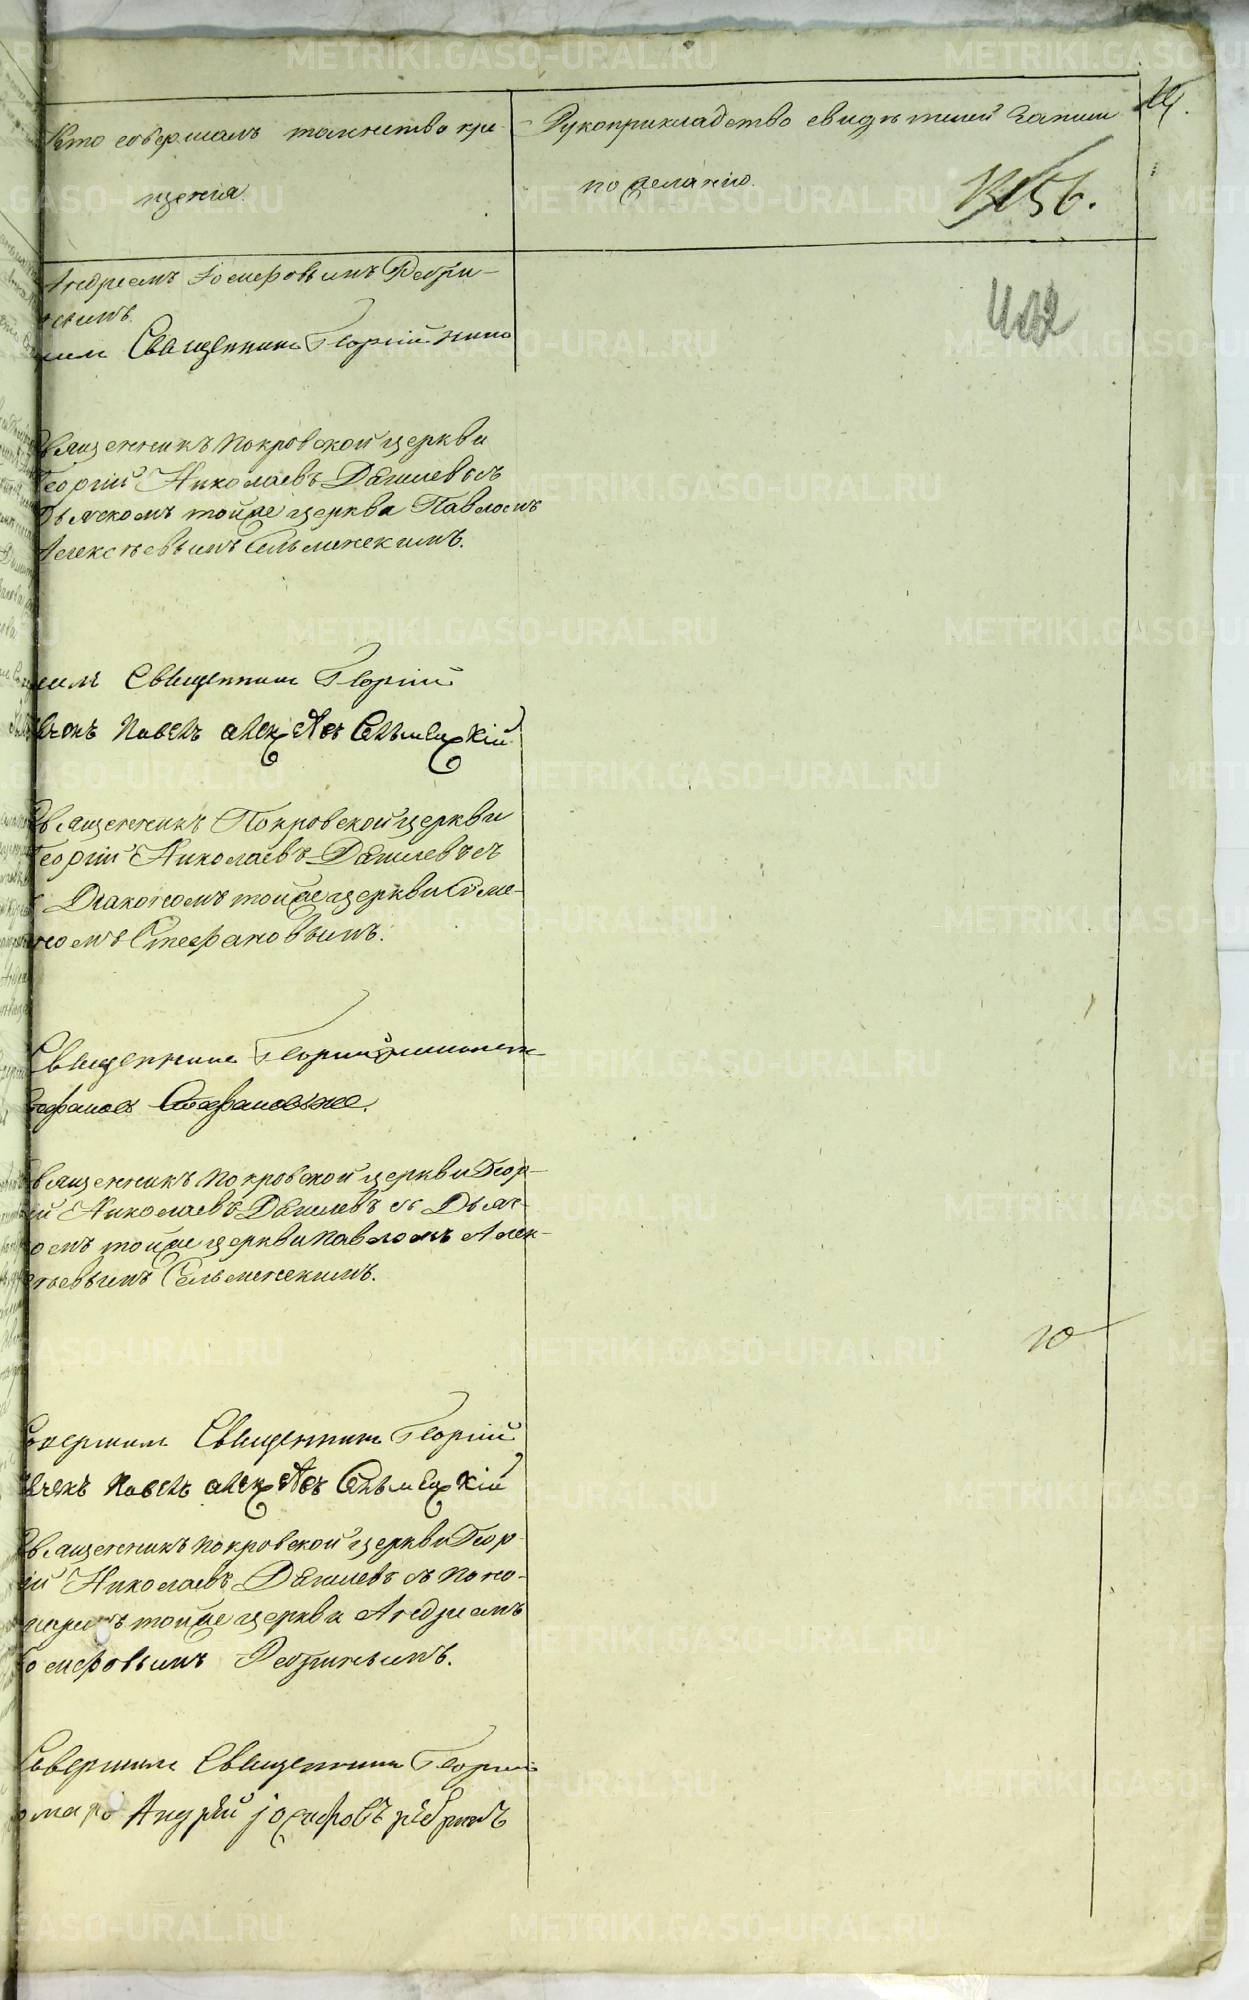 Кто совершалъ таинство кре-
щенія.
Рукоприкладство свидѣтелей записи
по желанію.
156.
Андреемъ Іосифовымъ Ребри-
нымъ
Священникъ Георгій
Священникъ Покровской церкви
Георгій Николаевъ съ
Дьячкомъ тойже церкви Павломъ
Алексѣевымъ Сельменскимъ.
Священникъ Георгій
Дьячекъ Павелъ Алексѣевъ Сельменскій
Священникъ Покровской церкви
Георгій Николаевъ съ
Діакономъ тойже церкви Симе-
ономъ Стефановымъ.
Священникъ Георгій
Стефановъ
Священникъ Покровской церкви Геор-
гій Николаевъ съ Дьяч-
комъ тойже церкви Павломъ Алек-
сѣевымъ Сельменскимъ.
10
Совершилъ Священникъ Георгій
Дьячекъ Павелъ Алексѣевъ Сельменскій
Священникъ Покровской церкви Геор-
гій Николаевъ съ Поно-
маремъ тойже церкви Андреемъ
Іосифовымъ Ребринымъ.
Совершилъ Священникъ Георгій
Пономарь Андрей Іосифовъ Ребринъ
METRIKI.GASO-URAL.RU